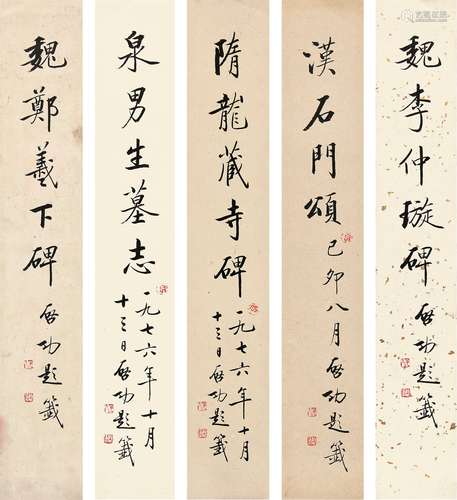 魏李仲璇碑 啓功題籤
漢石門頌 己卯八月啓功題籤
隋龍藏寺碑 一九七六年十月
十三日啓功題籤
泉男生墓志 一九七六年十月
十三日啓功題籤
魏鄭羲下碑 啓功題籤